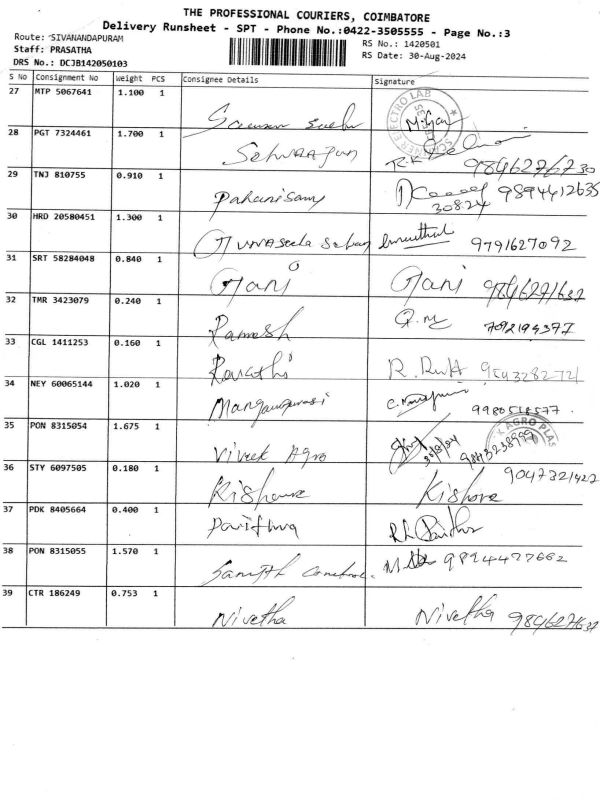 THE PROFESSIONAL COURIERS, COIMBATORE
Delivery Runsheet - SPT - Phone No.:0422-3505555 - Page No.:3
Route: SIVANANDAPURAM
RS No.: 1420501
Staff: PRASATHA
RS Date: 30-Aug-2024
DRS No.: DCJB142050103
S No Consignment No Weight PCS Consignee Details Signature
27 MTP 5067641 1.100 1
ELECTRO LAB
28 PGT 7324461 1.700 1 Selvarajun
29 TNJ 810755 0.910 1 Pahanisamy 9894412635
30.8.24
30 HRD 20580451 1.300 1 9791627092
31 SRT 58284048 0.840 1 Jani Jani 9846271632
32 TMR 3423079 0.240 1 Ramesh
33 CGL 1411253 0.160 1 Revathi
34 NEY 60065144 1.020 1 9980518577
35 PON 8315054 1.675 1 Vivek Agro 30/8/24
AGRO PLAS
36 STY 6097505 0.180 1 Kishore Kishore 9047321422
37 PDK 8405664 0.400 1
38 PON 8315055 1.570 1 9894477662
39 CTR 186249 0.753 1 Nivetha Nivetha 9846271632